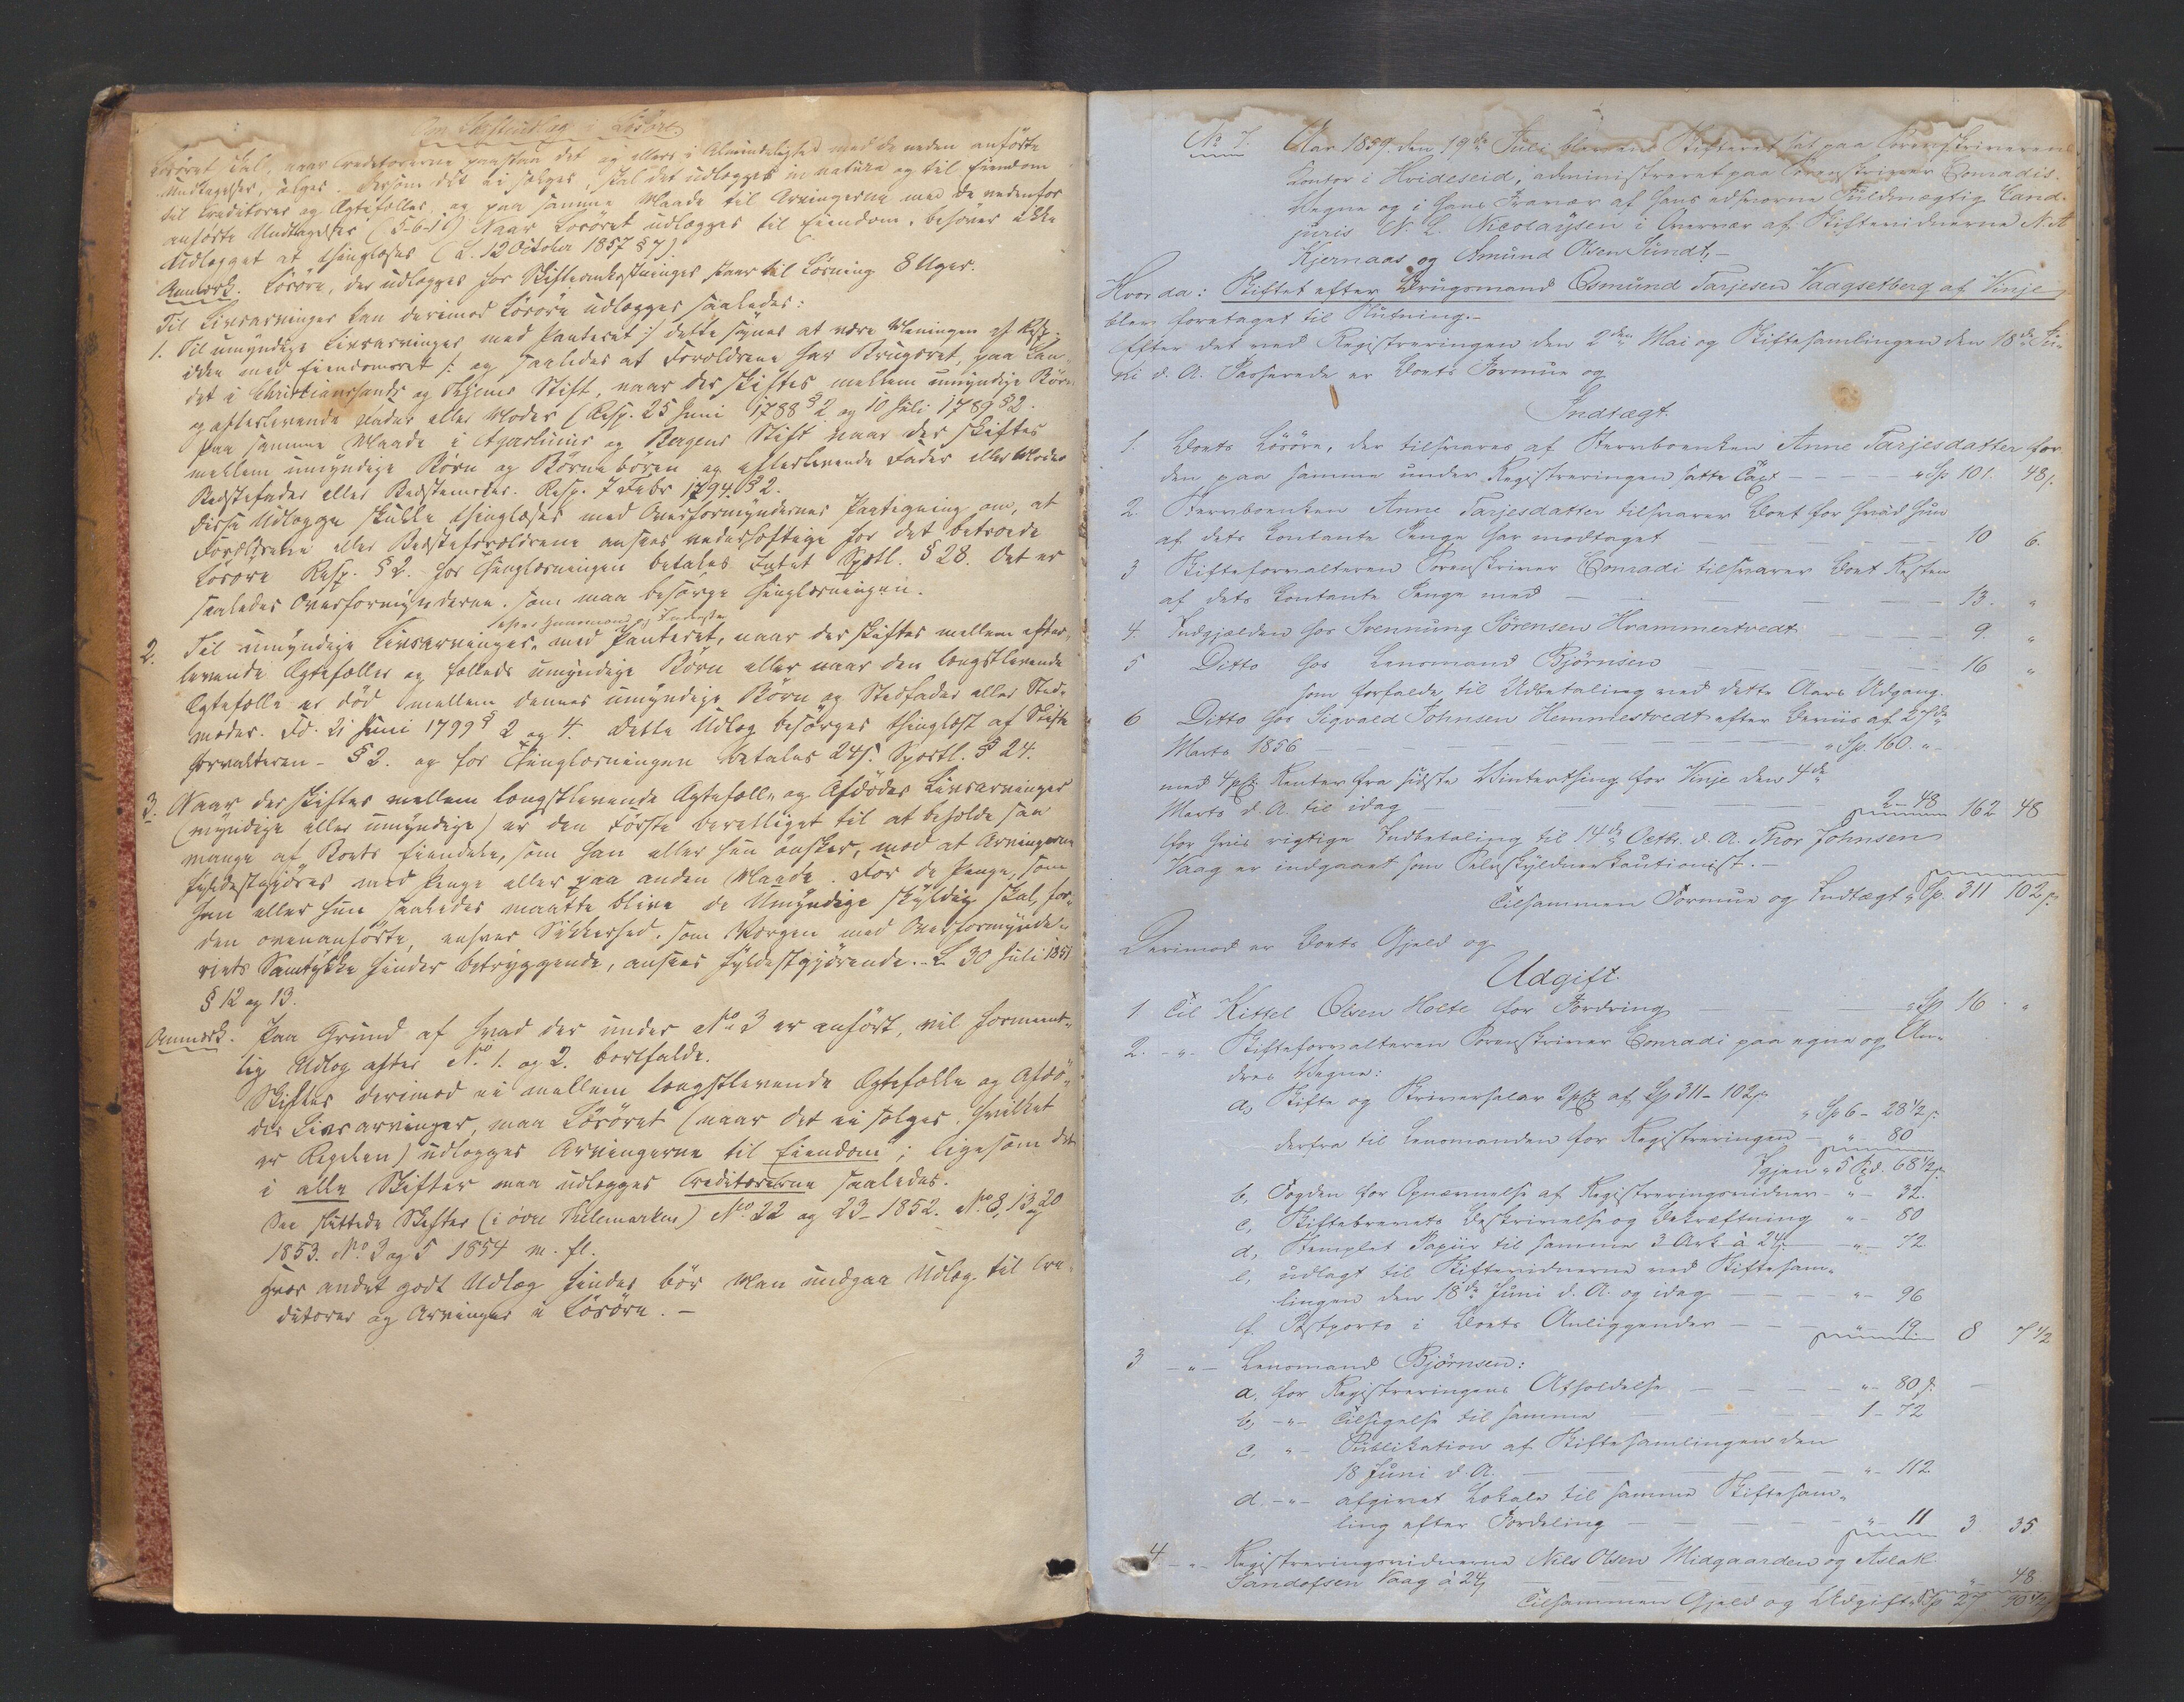 Om Skifteudlæg i Løsøre.
Løsøret skal, naar Creditorerne paastaa det og ellers i Almindelighed med de neden anførte
Undtagelser, sælges. Dersom det ei sælges, skal det udlægges in natura og til Eiendom
til Creditorer og Ægtefæller og paa samme Maade til Arvingerne med de nedenfor
anførte Undtagelser (5-6-1) Naar Løsøret udlægges til Eiendom, behøver ikke
Udlægget at thinglæses (L. 12 October 1857 § 7)
Anmerk. Løsøre, der udlægges for Skifteomkostninger staar til Løsning 8 Uger.
Til Livsarvinger kan derimod Løsøre udlægges saaledes:
1. Til umyndige Livsarvinger med Panteret :/ dette synes at være Meningen af Resp.
ikke med Eiendomsret /: og saaledes at Forældrene har Brugsret, paa Lan-
det i Christianssands og Thjems Stift, naar der skiftes mellem umyndige Børn
og efterlevende Fader eller Moder (Resp. 25 Juni 1788 § 2 og 10 Juli 1789 § 2.
Paa samme Maade i Agershuus og Bergens Stift naar der skiftes
mellem umyndige Børn og Børnebørn og efterlevende Fader eller Moder
Bedstefader eller Bedstemoder. Resp. 7 Febr 1794 § 2.
Disse Udlægge skulle thinglæses med Overformyndernes Paategning om, at
Forældrene eller Bedsteforældrene ansees vederhæftige for det betroede
Løsøre Resp. § 2. For Thinglæsningen betales Intet Sportl. § 28. Det er
saaledes Overformynderne, som maa besørge Thinglæsningen.
2. Til umyndige Livsarvinger, med Panteret, naar der skiftes mellem efter-
levende Ægtefælle og fælleds umyndige Børn eller naar den længstlevende
Ægtefælle er død mellem dennes umyndige Børn og Stedfader eller Sted-
moder. Fd. 21 Juni 1799 § 2 og 4. Dette Udlæg besørges thinglæst af Skifte
forvalteren - § 2. og for Thinglæsningen betales 24 s. Sportl. § 24.
3. Naar der skiftes mellem længstlevende Ægtefælle og Afdødes Livsarvinger
(myndige eller umyndige) er den Første berettiget til at beholde saa
mange af Boets Eiendele, som han eller hun ønsker, mod at Arvingerne
fyldestgjøres med Penge eller paa anden Maade. For de Penge, som
han eller hun saaledes maatte blive de Umyndige skyldig skal, for-
den ovenanførte, enhver Sikkerhed, som Værgen med Overformynde-
riets Samtykke finder betryggende, ansees fyldestgjørende. - L 30 Juli 1851
§ 12 og 13.
Anmerk. Paa Grund af hvad der under No 3 er anført, vil forment-
lig Udlæg efter No. 1. og 2. bortfalde.
Skiftes derimod ei mellem længstlevende Ægtefælle og Afdø-
des Livsarvinger, maa Løsøret (naar det ei sælges, hvilket
er Regelen) udlægges Arvingerne til Eiendom; ligesom det
i alle Skifter maa udlægges Creditorerne saaledes.
See sluttede Skifter (i øvre Thelemarken) No. 22 og 23 - 1852. No 8, 13 og 20
1853. No 3 og 5 1854 m. fl.
Hvor andet godt Udlæg findes bør man undgaa Udlæg til Cre-
ditorer og Arvinger i Løsøre. -
No 7. Aar 1859. den 19de Juli blev en Skifteret sat paa Sorenskriverens
Contor i Hvideseid, administreret paa Sorenskriver Conradis
Vegne og i hans Fravær af hans edsvorne Fuldmægtig Cand.
juris N. L. Nicolaysen i Overvær af Skiftevidnerne N. A
Kjernaas og Amund Olsen Sundt, -
Hvor da: Skiftet efter Brugsmand Osmund Tarjesen Vaagsetberg af Vinje
blev foretaget til Slutning. -
Efter det ved Registreringen den 2den Mai og Skiftesamlingen den 18de Ju-
ni d. A. Passerede er Boets Formue og
Indtægt.
1. Boets Løsøre, der tilsvares af Stervboenken Anne Tarjesdatter for
den paa samme under Registreringen satte Taxt - - - - " Sp. 101. 48 s.
2. Stervboenken Anne Tarjesdatter tilsvarer Boet for hvad hun
af dets Contante Penge har modtaget - - - 10 6.
3 Skifteforvalteren Sorenskriver Conradi tilsvarer Boet Resten
af dets Contante Penge med - - - - 13. "
4. Indgjælden hos Svennung Sørensen Hrammertvedt - - 9. "
5 Ditto hos Lensmand Bjørnsen - - - 16 "
som forfalde til Udbetaling ved dette Aars Udgang.
6 Ditto hos Sigvald Johnsen Hemmestvedt efter Beviis af 27de
Marts 1856 - - - " Sp. 160. " -
med 4 pCt Renter fra sidste Vinterthing for Vinje den 4de
Marts d. A. til idag - - - 2 - 48 162 48
for hvis rigtige Indbetaling til 14de Octbr. d. A. Thor Johnsen
Vaag er indgaaet som Selvskyldnercautionist. -
Tilsammen Formue og Indtægt " Sp. 311 102 s.
Derimod er Boets Gjeld og
Udgift.
1 Til Kittel Olsen Holte for Fordring - - " Sp 16 "
2. - " - Skifteforvalteren Sorenskriver Conradi paa egne og An-
dres Vegne:
a, Skifte og Skriversalær 2 pCt af Sp 311 - 102 s.
" Sp 6 - 28 1/2 s.
derfra til Lensmanden for Registreringen - " - 80
Igjen " 5 Spd. 68 1/2 s.
b, Fogden for Opnævnelse af Registreringsvidner - " - 32.
c, Skiftebrevets Beskrivelse og Bekræftning " - 80
d, Stemplet Papiir til samme 3 Ark à 24 s. - " - 72
e, udlagt til Skiftevidnerne ved Skiftesam-
lingen den 18de Juni d. A. og idag - - - " - 96
f. Postporto i Boets Anliggender - - " - 19. 8 7 1/2
3 - " - Lensmand Bjørnsen:
a. for Registreringens Afholdelse - - - " - 80 s. -
b, - " - Tilsigelse til samme - - 1 - 72
c, " - Publikation af Skiftesamlingen den
18 Juni d. A. - - - " - 112
d. - " - afgivet Lokale til samme Skiftesam-
ling efter Fordeling - - - " - 11 3 35
4 - " - Registreringsvidnerne Nils Olsen Midgaarden og Aslak
Sandofsen Vaag à 24 s - - - " - 48
Tilsammen Gjeld og Udgift " Sp 27 90 1/2 s